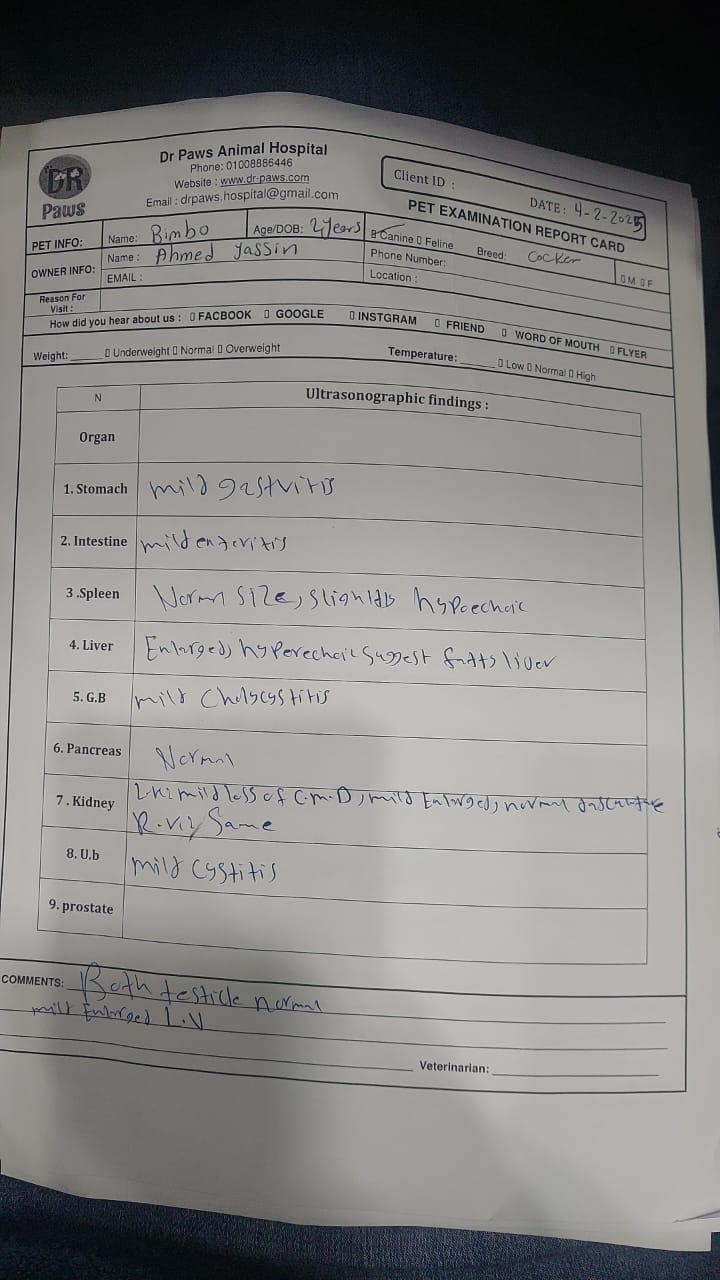 DR
Paws
Dr Paws Animal Hospital
Phone: 01008886446
Website : www.dr-paws.com
Email : drpaws.hospital@gmail.com
Client ID :
DATE: 4-2-2025
PET EXAMINATION REPORT CARD
PET INFO: Name: Bimbo Age/DOB: 2years Canine Feline Breed: Cocker M F
OWNER INFO: Name : Ahmed Yassin Phone Number:
EMAIL : Location :
Reason For
Visit :
How did you hear about us : FACBOOK GOOGLE INSTGRAM FRIEND WORD OF MOUTH FLYER
Weight: Underweight Normal Overweight Temperature: Low Normal High
N Ultrasonographic findings :
Organ
1. Stomach mild gastritis
2. Intestine mild enteritis
3 .Spleen Normal size, slightly hypoechoic
4. Liver Enlarged, hyperechoic suggest fatty liver
5. G.B mild
6. Pancreas Normal
7 . Kidney mild loss of C.M.D, mild Enlarged, normal
Same
8. U.b mild cystitis
9. prostate
COMMENTS: Both testicle normal
mild Enlarged L.N
Veterinarian: